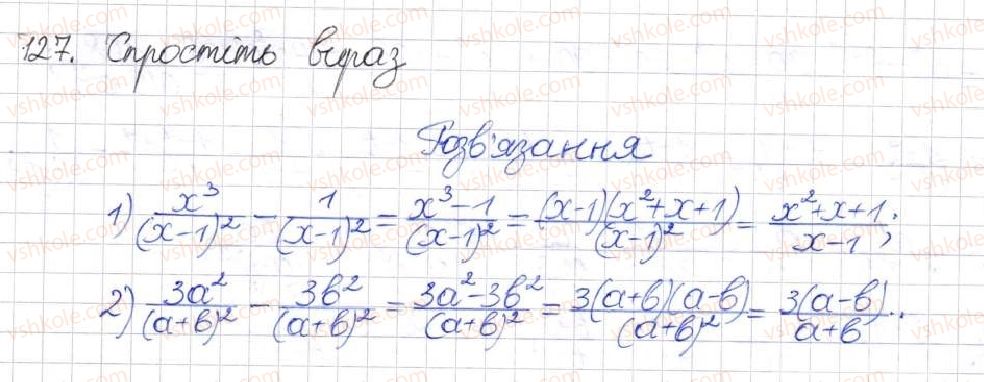 127. Спростіть вираз
Розв'язання
1) x³/(x-1)² - 1/(x-1)² = (x³-1)/(x-1)² = (x-1)(x²+x+1)/(x-1)² = (x²+x+1)/(x-1);
2) 3a²/(a+b)² - 3b²/(a+b)² = (3a²-3b²)/(a+b)² = 3(a+b)(a-b)/(a+b)² = 3(a-b)/(a+b).
vshkole.com